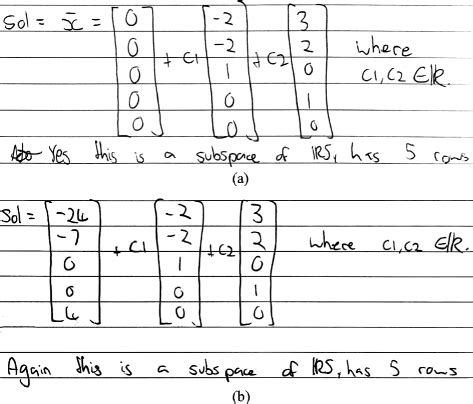 Sol = x̄ = [0 0 0 0 0] + C1 [-2 -2 1 0 0] + C2 [3 2 0 1 0] where C1, C2 ∈ℝ.
Yes this is a subspace of IR5, has 5 rows
(a)
Sol = [-24 -7 0 0 4] + C1 [-2 -2 1 0 0] + C2 [3 2 0 1 0] where C1, C2 ∈ℝ.
Again this is a subspace of IR5, has 5 rows
(b)